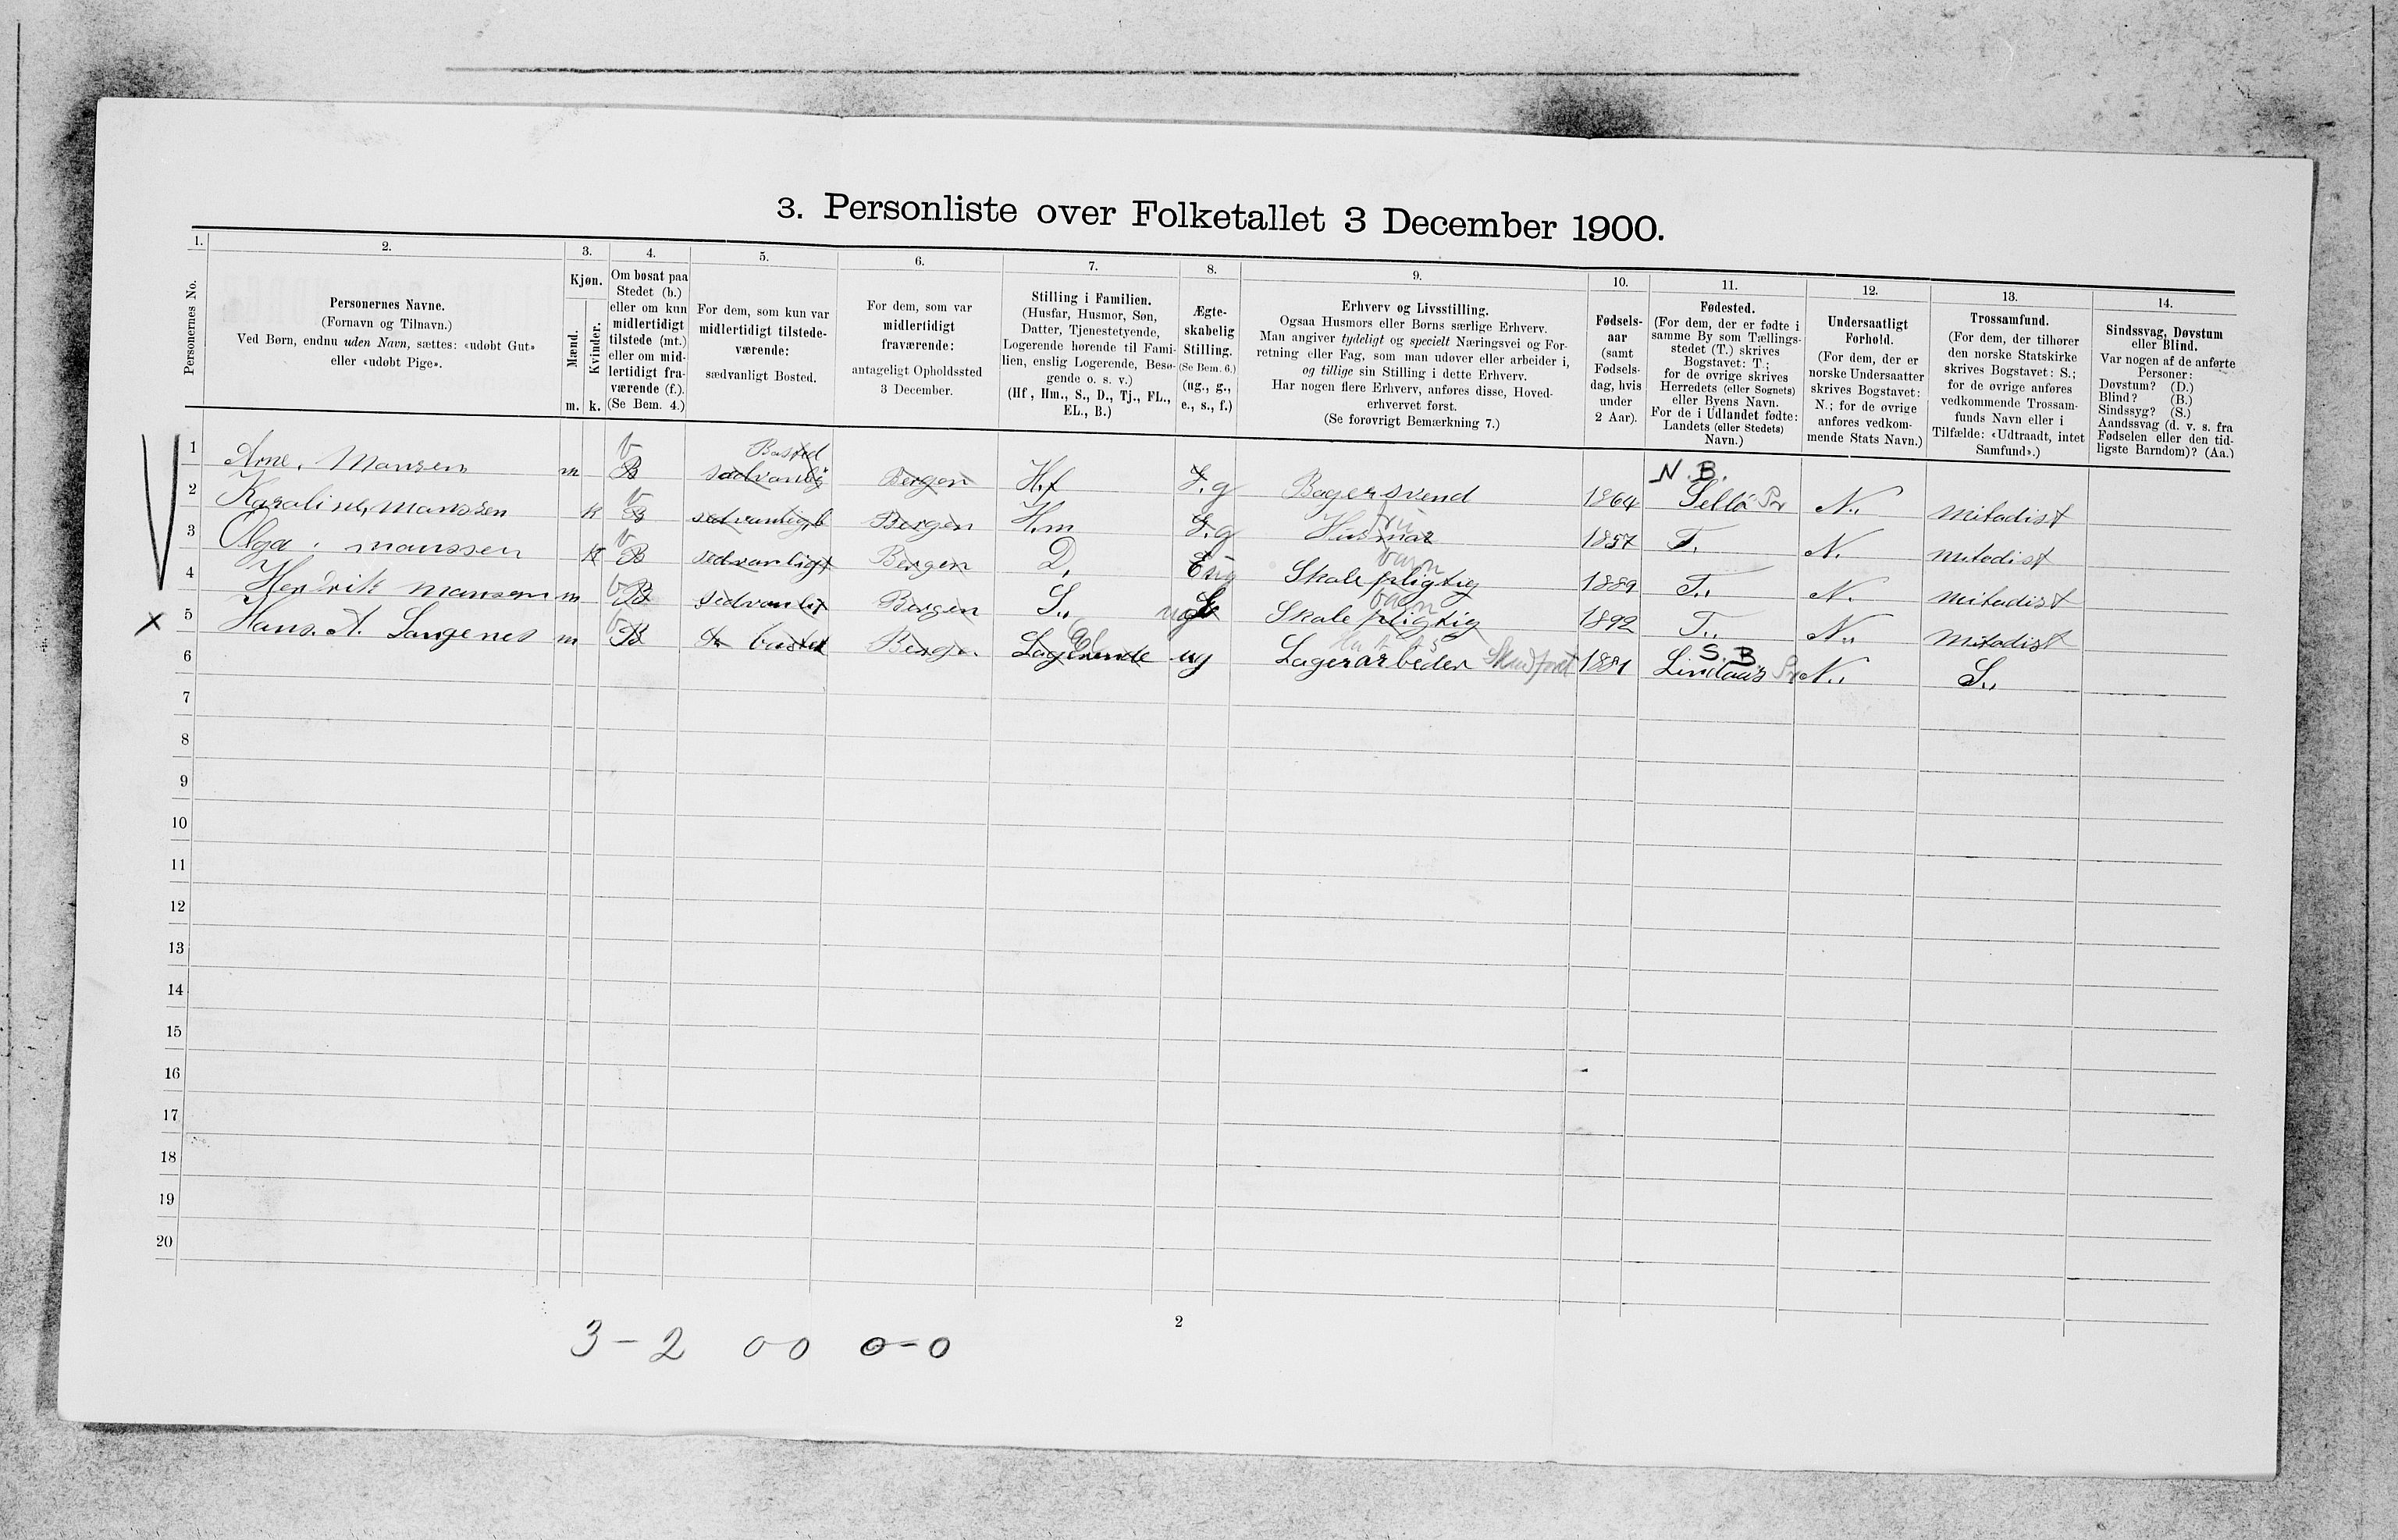 3. Personliste over Folketallet 3 December 1900.
1. 2. 3. 4. 5. 6. 7. 8. 9. 10. 11. 12. 13. 14.
Personernes No.
Personernes Navne.
(Fornavn og Tilnavn.)
Ved Børn, endnu uden Navn, sættes: «udøbt Gut»
eller «udøbt Pige».
Kjøn.
Mænd.
Kvinder.
m. k.
Om bosat paa
Stedet (b.)
eller om kun
midlertidigt
tilstede (mt.)
eller om mid-
lertidigt fra-
værende (f.).
(Se Bem. 4.)
For dem, som kun var
midlertidigt tilstede-
værende:
sædvanligt Bosted.
For dem, som var
midlertidigt
fraværende:
antageligt Opholdssted
3 December.
Stilling i Familien.
(Husfar, Husmor, Søn,
Datter, Tjenestetyende,
Logerende hørende til Fami-
lien, enslig Logerende, Besø-
gende o. s. v.)
(Hf, Hm., S., D., Tj., FL.,
EL., B.)
Ægte-
skabelig
Stilling.
(Se Bem. 6.)
(ug., g.,
e., s., f.)
Erhverv og Livsstilling.
Ogsaa Husmors eller Børns særlige Erhverv.
Man angiver tydeligt og specielt Næringsvei og For-
retning eller Fag, som man udøver eller arbeider i,
og tillige sin Stilling i dette Erhverv.
Har nogen flere Erhverv, anføres disse, Hoved-
erhvervet først.
(Se forøvrigt Bemærkning 7.)
Fødsels-
aar
(samt
Fødsels-
dag, hvis
under
2 Aar).
Fødested.
(For dem, der er fødte i
samme By som Tællings-
stedet (T.) skrives
Bogstavet: T.;
for de øvrige skrives
Herredets (eller Sognets)
eller Byens Navn.
For de i Udlandet fødte:
Landets (eller Stedets)
Navn.)
Undersaatligt
Forhold.
(For dem, der er
norske Undersaatter
skrives Bogstavet:
N.; for de øvrige
anføres vedkom-
mende Stats Navn.)
Trossamfund.
(For dem, der tilhører
den norske Statskirke
skrives Bogstavet: S.;
for de øvrige anføres
vedkommende Trossam-
funds Navn eller i
Tilfælde: «Udtraadt, intet
Samfund».)
Sindssvag, Døvstum
eller Blind.
Var nogen af de anførte
Personer:
Døvstum? (D.)
Blind? (B.)
Sindssyg? (S.)
Aandssvag (d. v. s. fra
Fødselen eller den tid-
ligste Barndom)? (Aa.)
b Bosted N. B.
1 Arne. Mansen m B sædvanlig Bergen H.f g Bagersvend 1864 Sellö Pr N. mitodist
b fru
2 Karoline, Manssen k B sedvanligt Bergen H.m g Husmor 1857 T. N. mitodist
b barn
3 Olga. manssen k B sedvanligt Bergen D. ug Skole pligtig 1889 T. N. mitodist
b barn
4 Hendrik mansen m B sedvanligt Bergen S. ug Skole pligtig 1892 T. N. mitodist
b El S. B
x 5 Hans. A. Langenes m B Bergen Lagerende ug Lagerarbeder 1881 Lindaas Pr N. S.
6
7
8
9
10
11
12
13
14
15
16
17
18
19
20
2
3-2 00 0-0